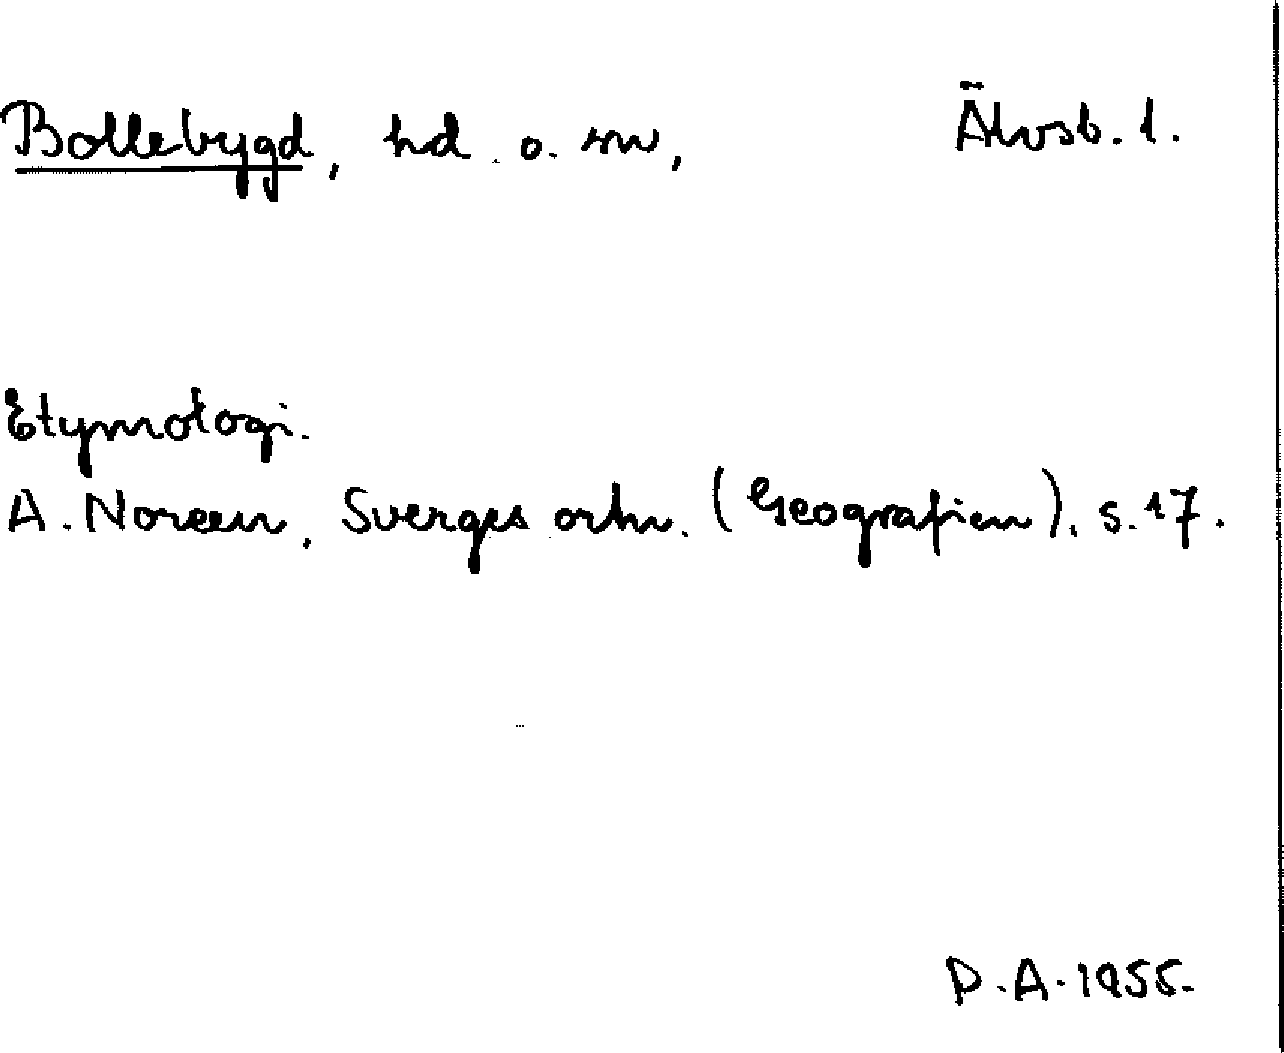 Bollebygd, hd. o. sn, Älvsb. l.
Etymologi.
A. Noreen, Sverges ortn. (Geografien), s. 17.
D.A. 1955.